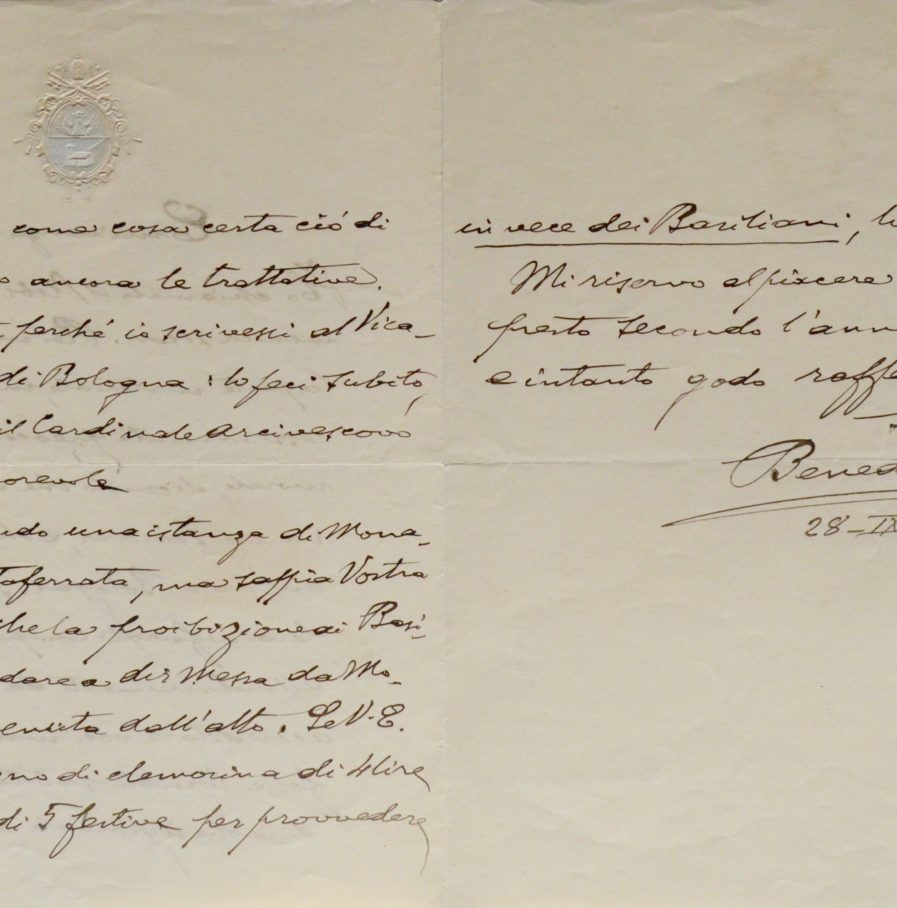 come cosa certa ciò di
ancora le trattative.
perché io scrivessi al Vica-
di Bologna: lo feci subito,
il Cardinale Arcivescovo
orevole
una istanza di Mona-
taferrata, ma sappia Vostra
che la proibizione ai Basi-
dare a dir Messa da Mo-
enuta dall'alto. Se V. E.
eno di elemosina di 4 lire
di 5 festive per provvedere
in vece dei Basiliani,
Mi riservo al piacere
presto secondo l'ann
e intanto godo raffe
Bened
28-IX